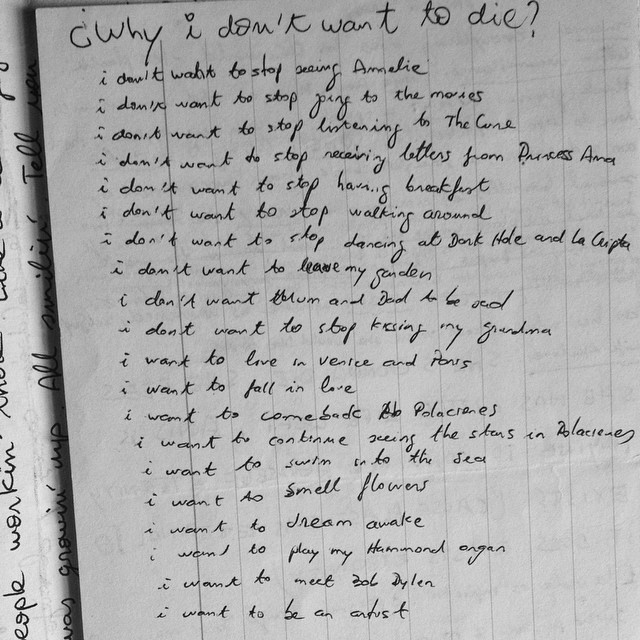 ¿Why i don't want to die?
i don't want to stop seeing Annelie
i don't want to stop going to the movies
i don't want to stop listening to The Cure
i don't want to stop receiving letters from Princess Ana
i don't want to stop having breakfast
i don't want to stop walking around
i don't want to stop dancing at Dark Hole and La Cripta
i don't want to leave my garden
i don't want Mum and Dad to be sad
i dont want to stop kissing my grandma
i want to live in Venice and Paris
i want to fall in love
i want to comeback to Polaciones
i want to continue seeing the stars in Polaciones
i want to swim into the sea
i want to smell flowers
i want to dream awake
i want to play my Hammond organ
i want to meet Bob Dylan
i want to be an artist
was growin' up. All smilin'. Tell
people workin'